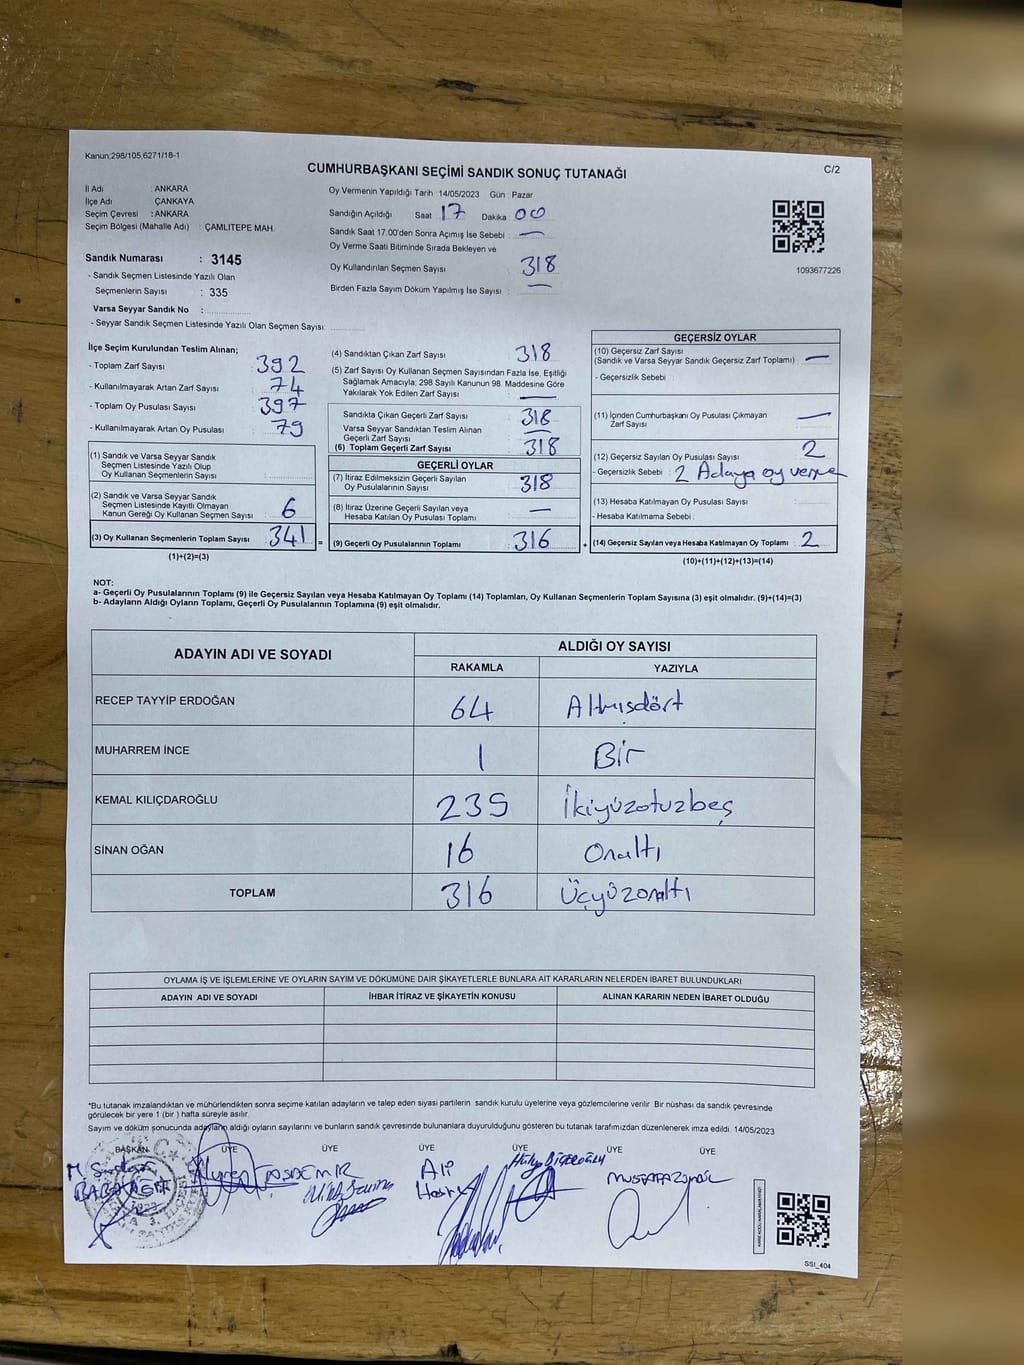 Kanun:298/105,6271/18-1
CUMHURBAŞKANI SEÇİMİ SANDIK SONUÇ TUTANAĞI
C/2
İl Adı : ANKARA
İlçe Adı : ÇANKAYA
Seçim Çevresi : ANKARA
Seçim Bölgesi (Mahalle Adı) : ÇAMLITEPE MAH.
Sandık Numarası : 3145
- Sandık Seçmen Listesinde Yazılı Olan
Seçmenlerin Sayısı : 335
Varsa Seyyar Sandık No :
- Seyyar Sandık Seçmen Listesinde Yazılı Olan Seçmen Sayısı:
Oy Vermenin Yapıldığı Tarih :14/05/2023 Gün : Pazar
Sandığın Açıldığı Saat 17 Dakika 00
Sandık Saat 17:00'den Sonra Açımış İse Sebebi : —
Oy Verme Saati Bitiminde Sırada Bekleyen ve
Oy Kullandırılan Seçmen Sayısı : 318
Birden Fazla Sayım Döküm Yapılmış İse Sayısı : —
1093677226
İlçe Seçim Kurulundan Teslim Alınan;
- Toplam Zarf Sayısı : 392
- Kullanılmayarak Artan Zarf Sayısı : 74
- Toplam Oy Pusulası Sayısı : 397
- Kullanılmayarak Artan Oy Pusulası : 79
(1) Sandık ve Varsa Seyyar Sandık
Seçmen Listesinde Yazılı Olup
Oy Kullanan Seçmenlerin Sayısı :
(2) Sandık ve Varsa Seyyar Sandık
Seçmen Listesinde Kayıtlı Olmayan
Kanun Gereği Oy Kullanan Seçmen Sayısı : 6
(3) Oy Kullanan Seçmenlerin Toplam Sayısı : 341
(1)+(2)=(3)
=
(4) Sandıktan Çıkan Zarf Sayısı : 318
(5) Zarf Sayısı Oy Kullanan Seçmen Sayısından Fazla İse, Eşitliği
Sağlamak Amacıyla; 298 Sayılı Kanunun 98. Maddesine Göre
Yakılarak Yok Edilen Zarf Sayısı : —
Sandıkta Çıkan Geçerli Zarf Sayısı : 318
Varsa Seyyar Sandıktan Teslim Alınan
Geçerli Zarf Sayısı : —
(6) Toplam Geçerli Zarf Sayısı : 318
GEÇERLİ OYLAR
(7) İtiraz Edilmeksizin Geçerli Sayılan
Oy Pusulalarının Sayısı : 318
(8) İtiraz Üzerine Geçerli Sayılan veya
Hesaba Katılan Oy Pusulası Toplamı : —
(9) Geçerli Oy Pusulalarının Toplamı : 316
+
GEÇERSİZ OYLAR
(10) Geçersiz Zarf Sayısı
(Sandık ve Varsa Seyyar Sandık Geçersiz Zarf Toplamı) : —
- Geçersizlik Sebebi :
(11) İçinden Cumhurbaşkanı Oy Pusulası Çıkmayan
Zarf Sayısı : —
(12) Geçersiz Sayılan Oy Pusulası Sayısı : 2
- Geçersizlik Sebebi : 2 Adaya oy verme
(13) Hesaba Katılmayan Oy Pusulası Sayısı :
- Hesaba Katılmama Sebebi :
(14) Geçersiz Sayılan veya Hesaba Katılmayan Oy Toplamı : 2
(10)+(11)+(12)+(13)=(14)
NOT:
a- Geçerli Oy Pusulalarının Toplamı (9) ile Geçersiz Sayılan veya Hesaba Katılmayan Oy Toplamı (14) Toplamları, Oy Kullanan Seçmenlerin Toplam Sayısına (3) eşit olmalıdır. (9)+(14)=(3)
b- Adayların Aldığı Oyların Toplamı, Geçerli Oy Pusulalarının Toplamına (9) eşit olmalıdır.
ADAYIN ADI VE SOYADI ALDIĞI OY SAYISI
RAKAMLA YAZIYLA
RECEP TAYYİP ERDOĞAN 64 Altmışdört
MUHARREM İNCE 1 Bir
KEMAL KILIÇDAROĞLU 235 İkiyüzotuzbeş
SİNAN OĞAN 16 Onaltı
TOPLAM 316 Üçyüzonaltı
OYLAMA İŞ VE İŞLEMLERİNE VE OYLARIN SAYIM VE DÖKÜMÜNE DAİR ŞİKAYETLERLE BUNLARA AİT KARARLARIN NELERDEN İBARET BULUNDUKLARI
ADAYIN ADI VE SOYADI İHBAR İTİRAZ VE ŞİKAYETİN KONUSU ALINAN KARARIN NEDEN İBARET OLDUĞU
*Bu tutanak imzalandıktan ve mühürlendikten sonra seçime katılan adayların ve talep eden siyasi partilerin sandık kurulu üyelerine veya gözlemcilerine verilir. Bir nüshası da sandık çevresinde
görülecek bir yere 1 (bir ) hafta süreyle asılır.
Sayım ve döküm sonucunda adayların aldığı oyların sayılarını ve bunların sandık çevresinde bulunanlara duyurulduğunu gösteren bu tutanak tarafımızdan düzenlenerek imza edildi. 14/05/2023
BAŞKAN ÜYE ÜYE ÜYE ÜYE ÜYE ÜYE
Ali
SSİ_404